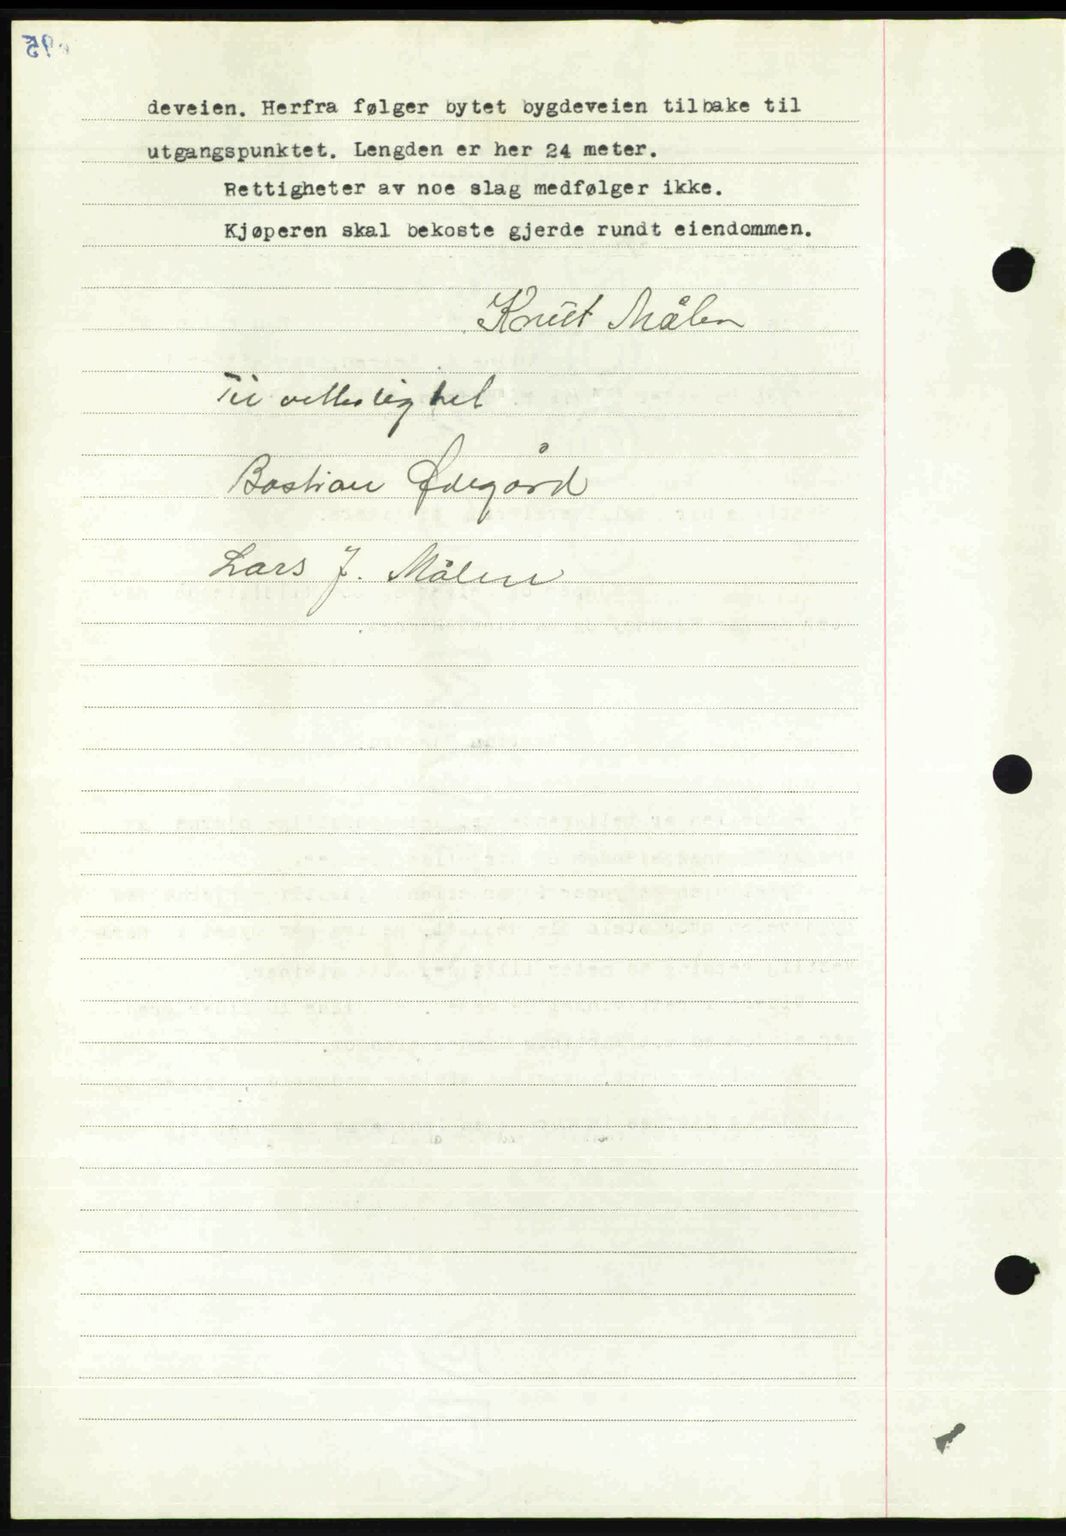 deveien. Herfra følger bytet bygdeveien tilbake til
utgangspunktet. Lengden er her 24 meter.
Rettigheter av noe slag medfølger ikke.
Kjøperen skal bekoste gjerde rundt eiendommen.
Knut Målen
Til vitterlighet
Bastian Ødegård
Lars J. Målen